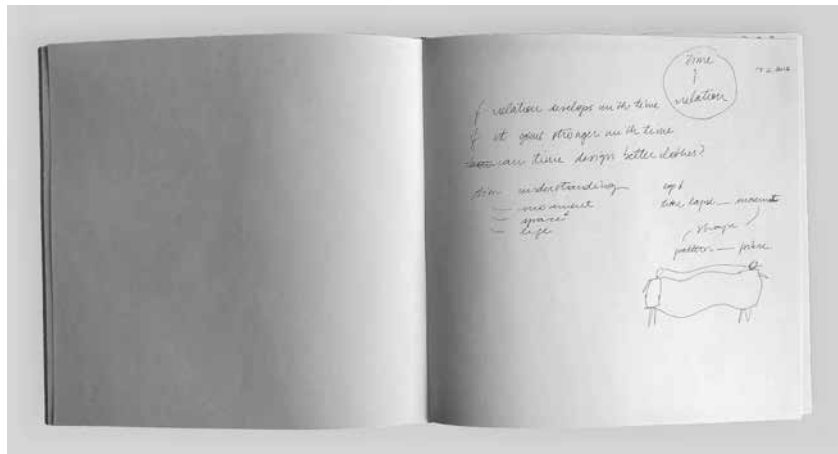 Time
&
relation
if relation develops with time
if it grows stronger with time
can time design better clothes?
understanding
— movement
— space
— life
time lapse — movement
shape
pattern —